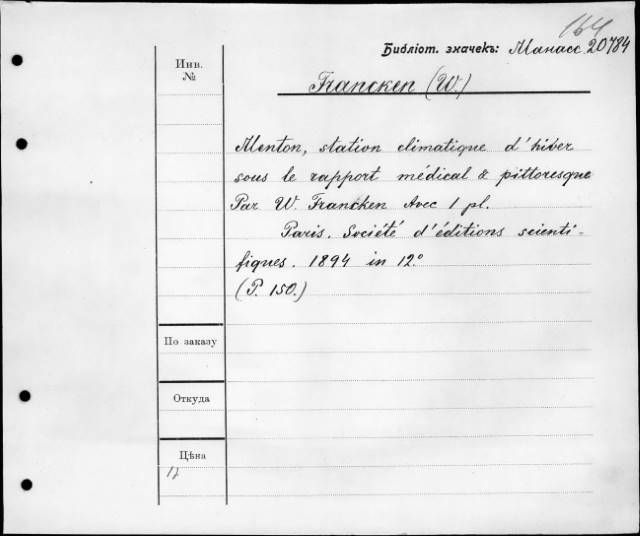 164
Библіот. значекъ: Манасс 20784
Инв.
№
Francken (W.)
Menton, station climatique d'hiver
sous le rapport médical & pittoresque
Par W. Francken Avec 1 pl.
Paris. Société d'éditions scienti-
fiques. 1894 in 12°
(P. 150.)
По заказу
Откуда
Цѣна